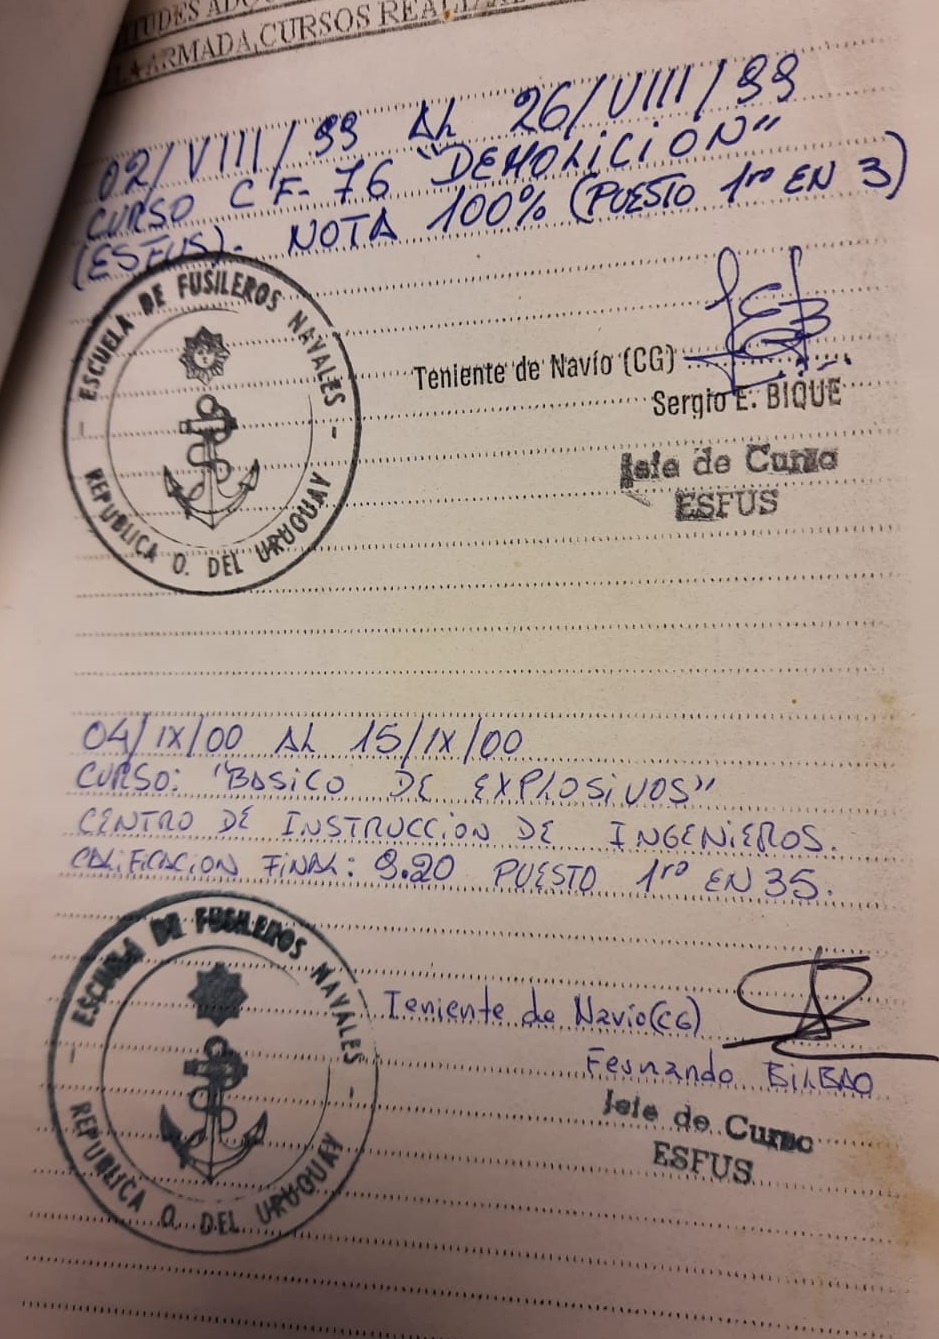 LA ARMADA, CURSOS
02/VIII/99 AL 26/VIII/99
CURSO CF-76 "DEMOLICION"
(ESFUS). NOTA 100% (PUESTO 1ro EN 3)
ESCUELA DE FUSILEROS NAVALES
REPUBLICA O. DEL URUGUAY
Teniente de Navío (CG)
Sergio E. BIQUE
Jefe de Curso
ESFUS
04/IX/00 AL 15/IX/00
CURSO: "BASICO DE EXPLOSIVOS"
CENTRO DE INSTRUCCION DE INGENIEROS.
CALIFICACION FINAL: 9.20 PUESTO 1ro EN 35.
ESCUELA DE FUSILEROS NAVALES
REPUBLICA O. DEL URUGUAY
Teniente de Navío (CG)
Fernando BILBAO
Jefe de Curso
ESFUS